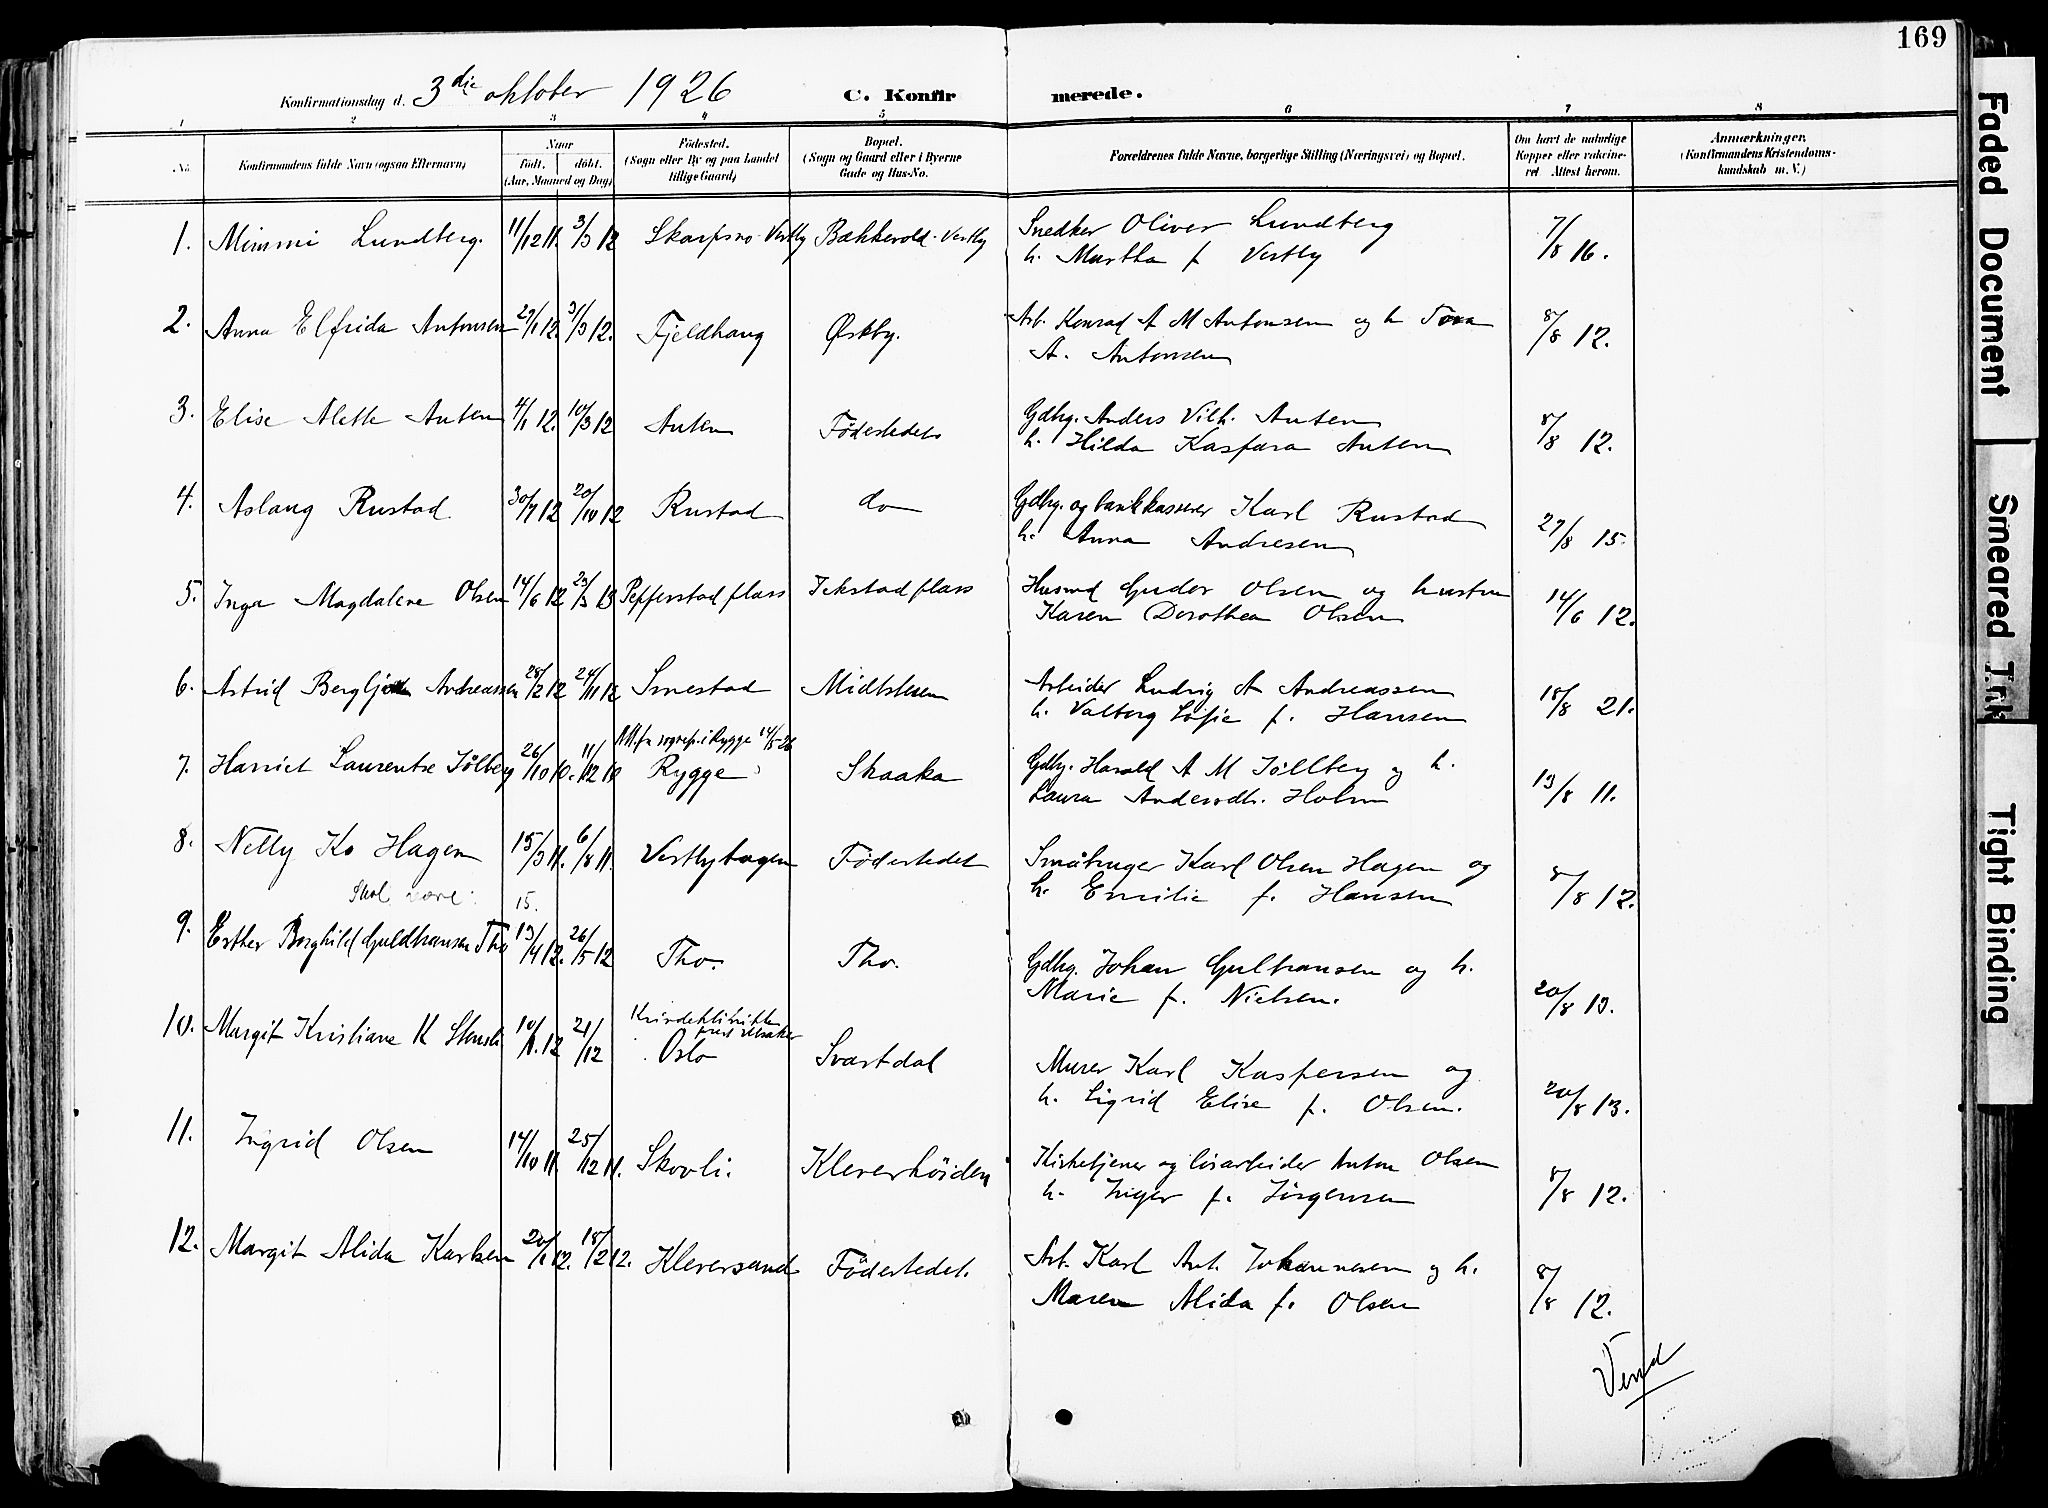 169
Konfirmationsdag d. 3die oktober 1926 C. Konfirmerede.
1 2 3 4 5 6 7 8
No. Konfirmandens fulde Navn (ogsaa Efternavn). Naar født. døbt. (Aar, Maaned og Dag) Fødested. (Sogn eller By og paa Landet tillige Gaard) Bopæl. (Sogn og Gaard eller i Byerne Gade og Hus-No. Forældrenes fulde Navne, borgerlige Stilling (Næringsvei) og Bopæl. Om havt de naturlige Kopper eller vaccineret. Attest herom. Anmærkninger. (Konfirmandens Kristendomskundskab m. V.)
1. Mimmi Lundberg. 11/12 11. 3/3 12 Skarpsno-Vestby Bækkevold-Vestby Snedker Oliver Lundberg 7/8 16.
h. Martha f Vestby
2. Anna Elfrida Antonsen 29/1 12. 31/3 12. Fjeldhaug Østby. Arb. Konrad A M Antonsen og h Tora 8/8 12.
A. Antonsen
3. Elise Alette Anten 4/1 12. 10/3 12 Anten Fødestedet Gdbr. Anders Vilh. Anten 8/8 12.
h. Hilda Kaspara Anten
4. Aslaug Rustad 30/7 12 20/10 12 Rustad do Gdbr. og bankkasserer Karl Rustad 27/8 15.
h. Anna Andresen
5. Inga Magdalene Olsen 14/6 12 23/3 13 Pepperstad plass Ikstad plass Husmd Guder Olsen og hustru 14/6 12.
Karen Dorothea Olsen
6. Astrid Bergljot Andreassen 28/2 12 24/11 12 Smestad Midtskren Arbeider Ludvig A Andreassen 18/8 21.
h. Valborg Sofie f. Hansen
Rygge 14/5-26
7. Harriet Laurentse Sölberg 26/10 10. 11/12 10 Rygge Skaaka Gdbr. Harald A M Söllberg og h. 13/8 11.
Laura Andersdt. Holm
8. Nelly Ko Hagen 15/3 11. 6/8 11. Vestbyhagen Fødestedet Småbruger Karl Olsen Hagen og 8/8 12.
h. Emilie f. Hansen
Skal være: 15.
9. Esther Borghild Guldhansen Tho 13/4 12. 26/5 12 Tho. Tho. Gdbr. Johan Gulhansen og h. 20/8 13.
Marie f. Nielsen.
10. Margit Kristiane K 10/1. 12 21/12 Kvindeklinikken
Oslo Svartdal Murer Karl Kaspersen og 20/8 13.
h. Sigrid Elise f. Olsen.
11. Ingrid Olsen 14/10 11 25/12 11. Skovli. Kleverhöiden Kirketjener og løsarbeider Anton Olsen 8/8 12.
h. Inger f. Jørgensen
12. Margit Alida Karlsen 20/1 12. 18/2 12. Kleversand Födestedet. Arb. Karl Ant. Johannesen og h. 8/8 12.
Maren Alida f. Olsen
Vend
Faded Document
Smeared Ink
Tight Binding